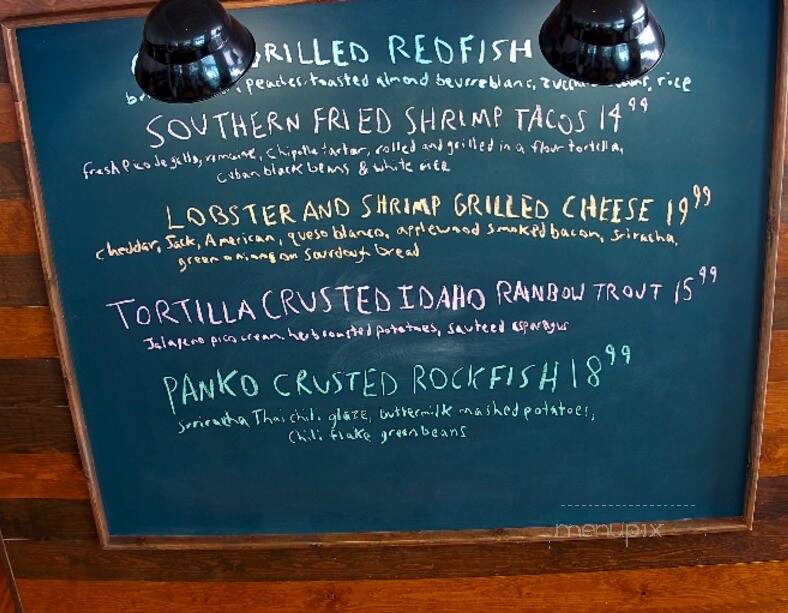 GRILLED REDFISH
peaches, toasted almond beurreblanc, rice
SOUTHERN FRIED SHRIMP TACOS 14⁹⁹
fresh pico de gallo, romaine, chipotle tartar, rolled and grilled in a flour tortilla,
cuban black beans & white rice
LOBSTER AND SHRIMP GRILLED CHEESE 19⁹⁹
cheddar, Jack, American, queso blanco, applewood smoked bacon, sriracha,
green onions on sourdough bread
TORTILLA CRUSTED IDAHO RAINBOW TROUT 15⁹⁹
Jalapeno pico cream, herb roasted potatoes, sauteed asparagus
PANKO CRUSTED ROCKFISH 18⁹⁹
Thai chili glaze, buttermilk mashed potatoes,
Chili flake green beans
menupix